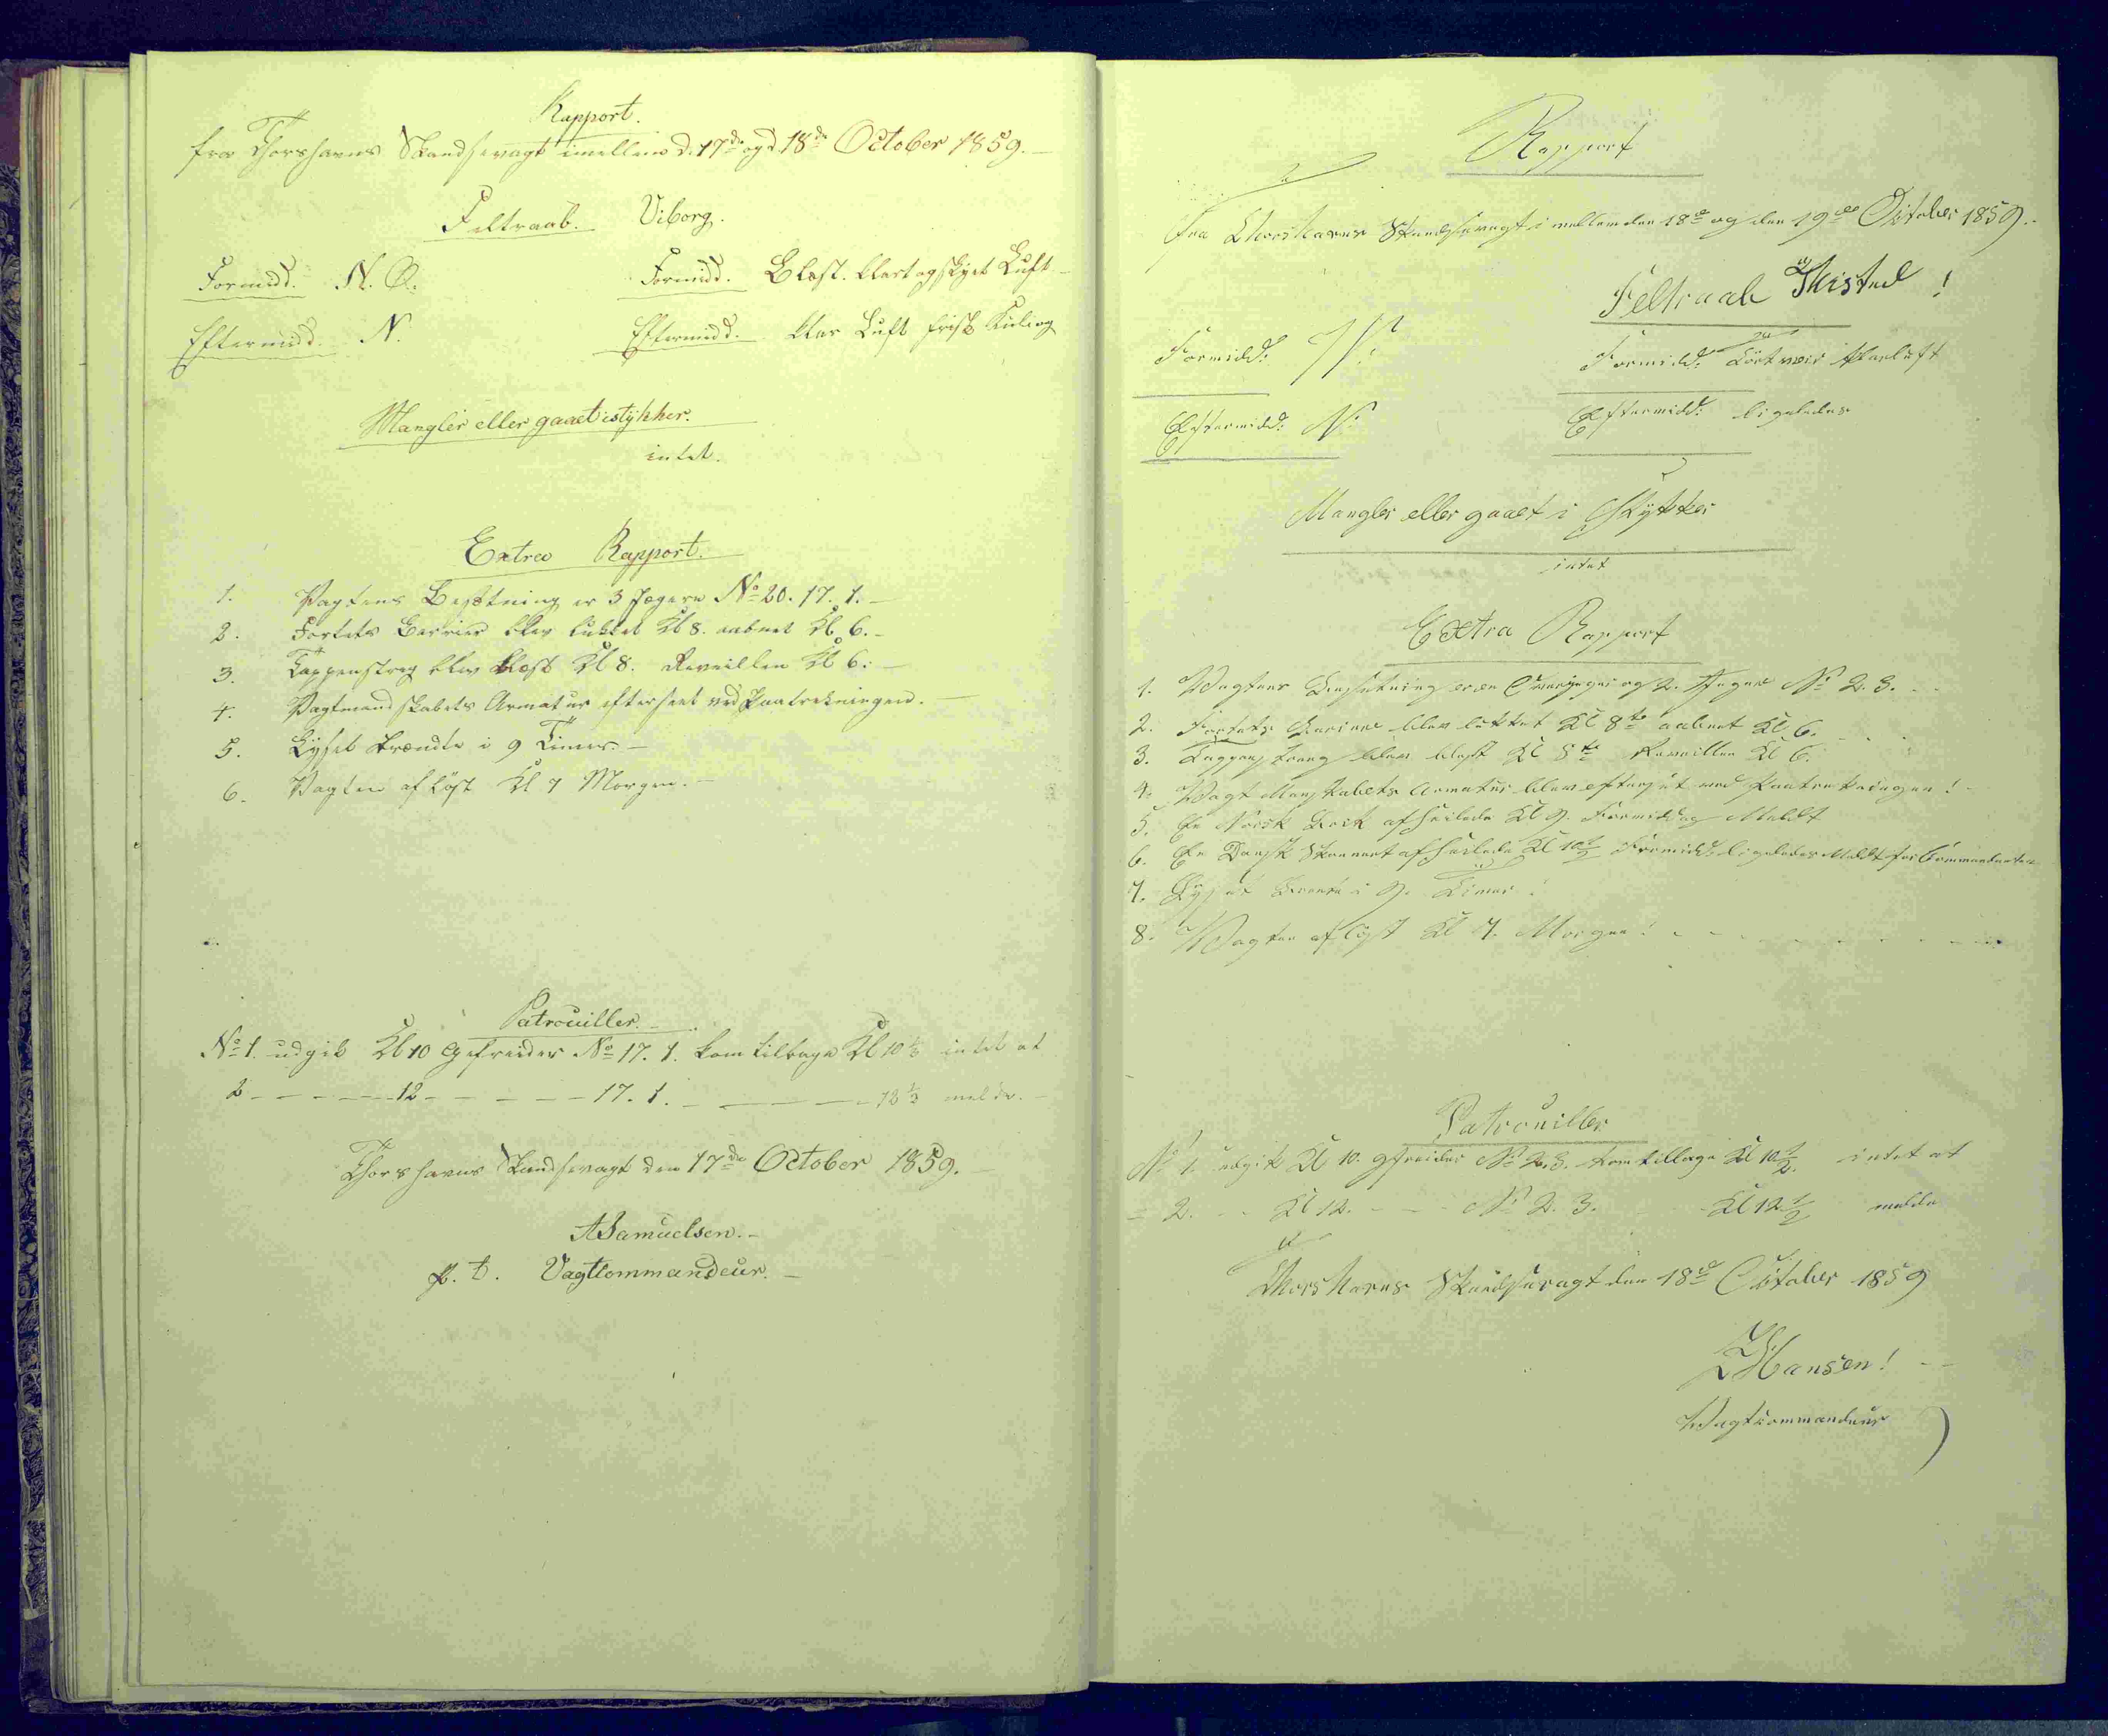 Rapport.
fra Thorshavns Skandsevagt imellem d. 17de og d 18de October 1859.
Feltraab. Viborg.
Formidd. N. O. Formidd. Blæst. klart og skyet Luft
Eftermidd. N. Eftermidd. klar Luft frisk Kuling
Mangler eller gaaet istykker.
intet.
Extra Rapport.
1. Vagtens Besætning er 3 Jægere No 20. 17. 1.
2. Fortets Barriere blev lukket Kl 8. aabnet Kl. 6.
3. Tappenstreg blev blæst Kl 8. Reveillen Kl 6.
4. Vagtmandskabets Armatur efterseet ved Paatrækningen.
5. Lyset brændte i 9 Timer.
6. Vagten aflöst Kl 7 Morgen.
Patrouiller.
No 1. udgik Kl 10 Gefreider No 17. 1. kom tilbage Kl 10 1/2 intet at
2 - - - - 12 - - - - - 17. 1. - - - - - 12 1/2 melde.
Thorshavns Skandsevagt den 17de October 1859.
A Samuelsen.
p. t. Vagtkommandeur.
Rapport
fra Thorshavns Skandsevagt i mellem den 18de og den 19de October 1859.
Feltraab Thisted!
Formidd: N: Formidd: Tört veir klar luft
Eftermidd: N: Eftermidd: ligeledes
Mangler eller gaaet i Stykker
intet
Extra Rapport
1. Vagtens Besætning er en Overjæger og 2. Jægere No 2. 3.
2. Fortets Bariere blev lukket Kl 8te aabnet Kl. 6.
3. Tappenstreng blev blæst Kl 8te Reveillen Kl 6.
4. Vagt Manskabets Armatur blev efterset ved Paatrækningen!
5. En Norsk Brik afseilede Kl 9. Formiddag Meldt
6. En Dansk Skonnert afseilede Kl 10 1/2 Formidd. ligeledes Meldt for Commandanten
7. Lyset brænte i 9. Timer!
8. Vagten aflöst Kl 7. Morgen!
Patrouiller
No 1. udgik Kl 10. gefreider No 2. 3. kom tilbage Kl 10 1/2. intet at
= 2. - - Kl 12. - - - No 2. 3. - Kl 12 1/2 melde
Thorshavns Skandsevagt den 18de October 1859
Hansen!
Vagtkommandeur